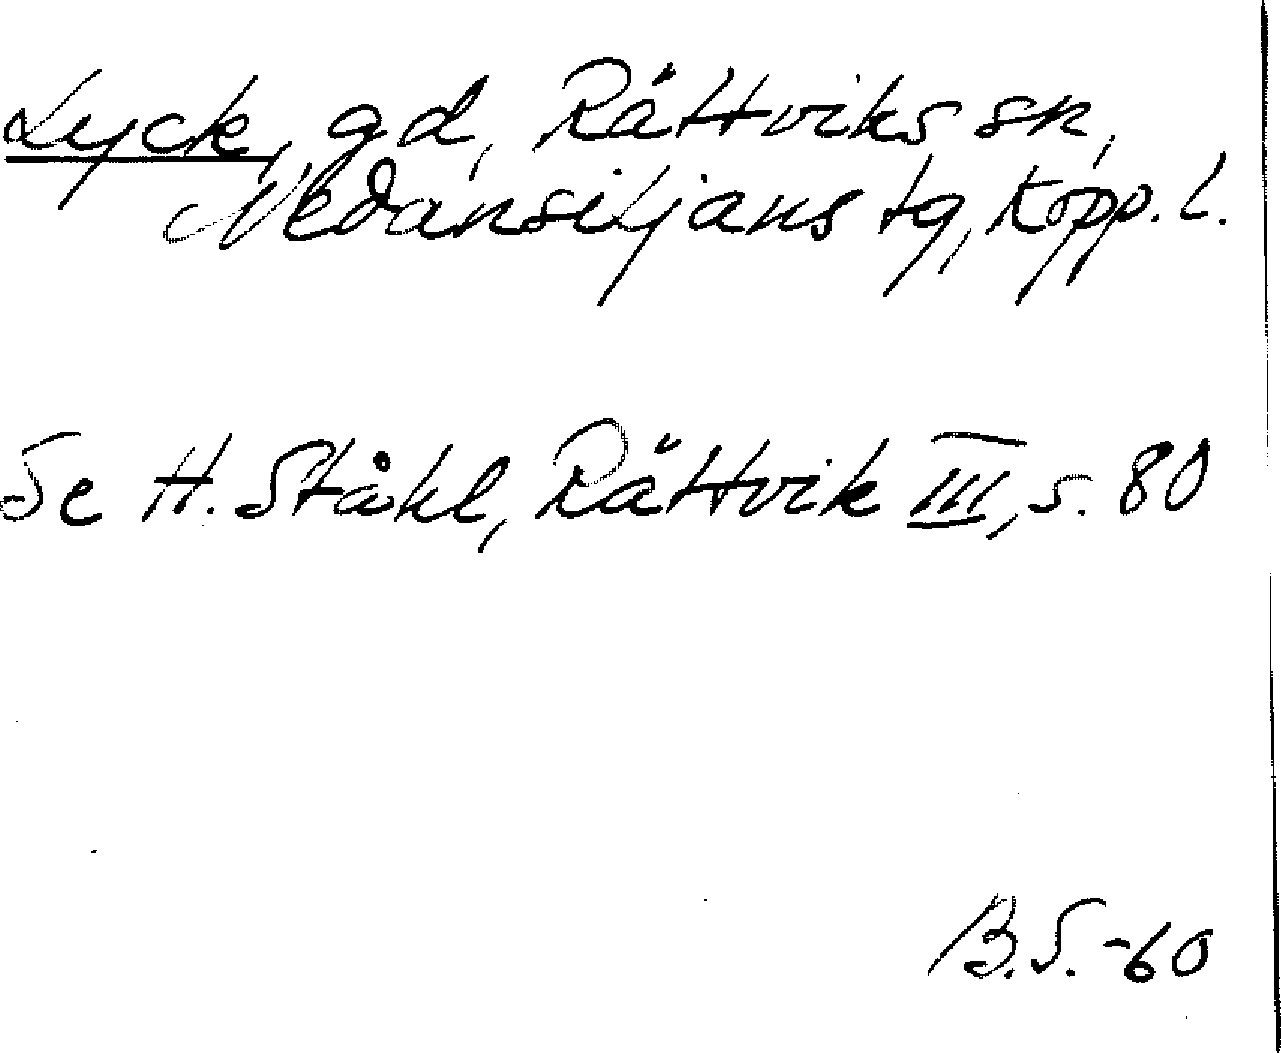 Lyck, gd, Rättviks sn,
Nedansiljans tg, Kopp. l.
Se H. Ståhl, Rättvik III, s. 80
B.S. -60